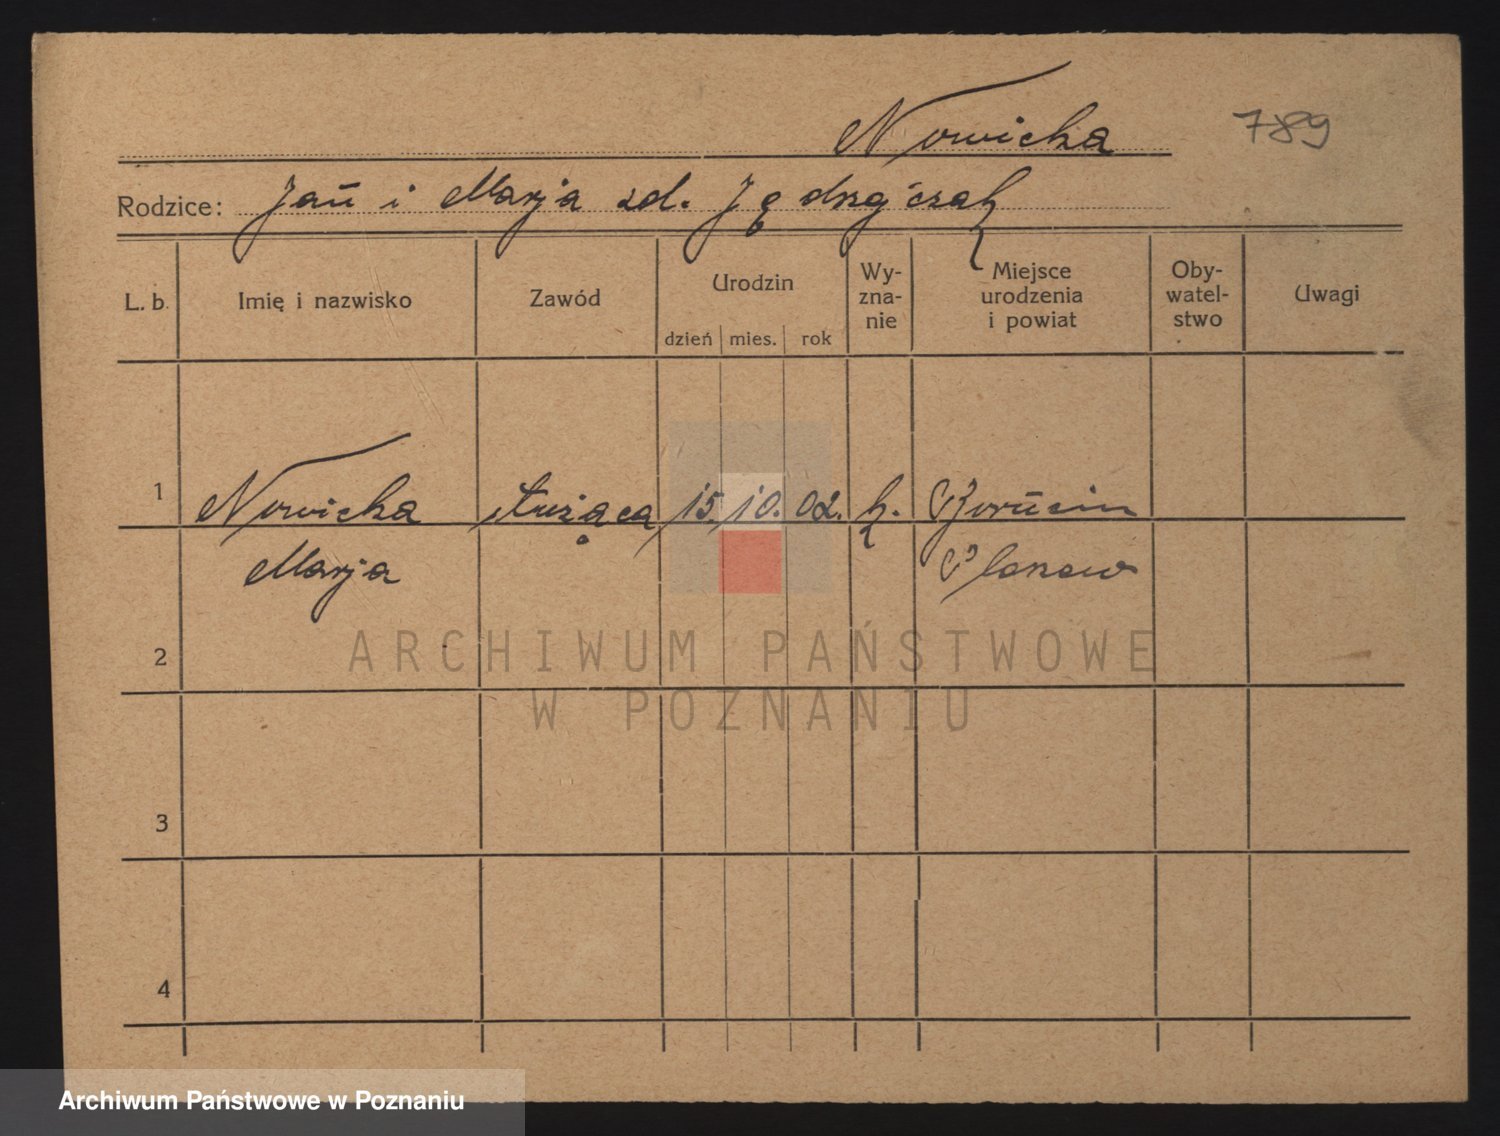 Nowicka
789
Rodzice: Jan i Marja zd. Jędrzyczak
L. b.
Imię i nazwisko
Zawód
Urodzin
dzień mies. rok
Wy-
zna-
nie
Miejsce
urodzenia
i powiat
Oby-
watel-
stwo
Uwagi
1 Nowicka służąca 15. 10. 02. k. Borucin
Marja
2
3
4
ARCHIWUM PAŃSTWOWE
W POZNANIU
Archiwum Państwowe w Poznaniu